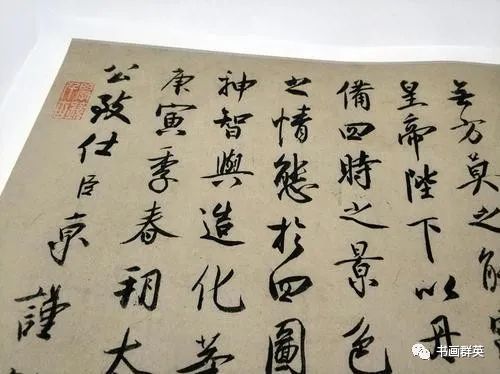 無方莫之能
皇帝陛下以丹
備四時之景色
之情態於四圖
神智與造化等
庚寅季春朔大
公致仕臣京謹
书画群英